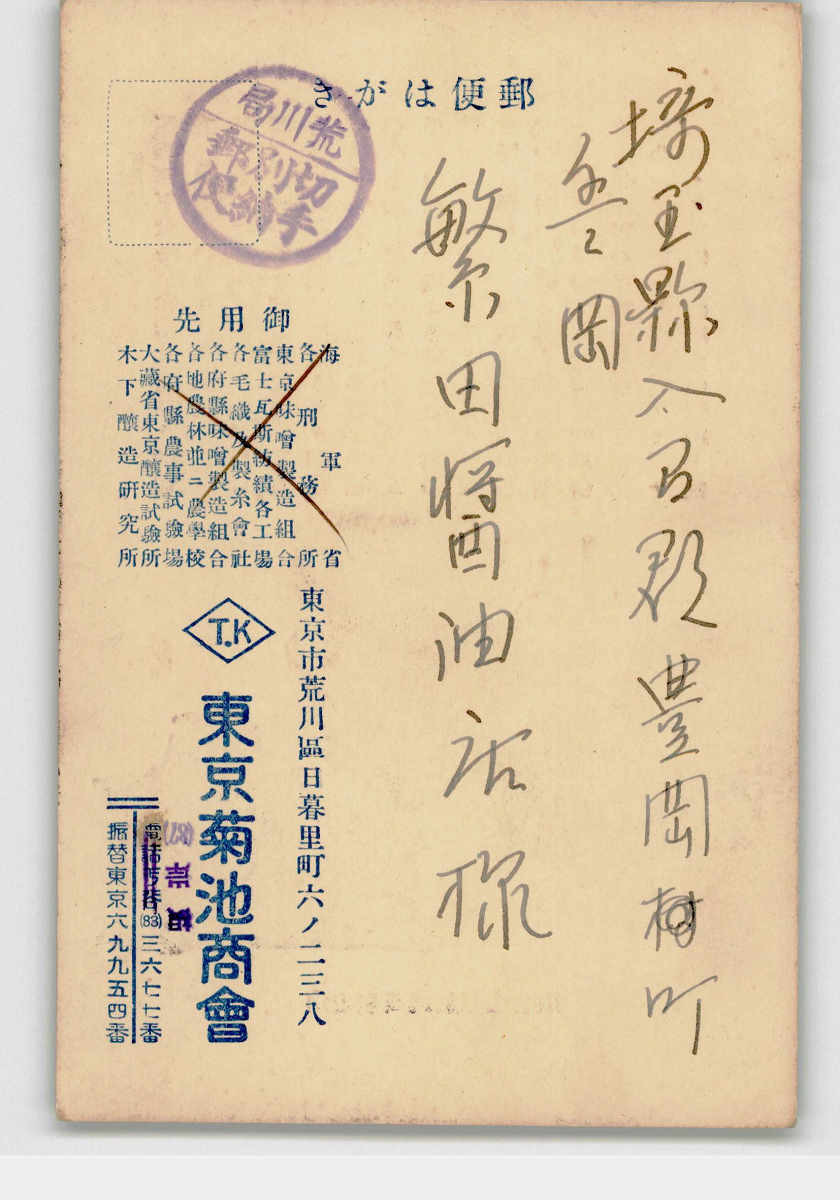 郵便はがき
荒川局
切手
別納
郵便
埼玉縣入間郡豊岡町
豊岡
繁田醤油店様
御用先
海軍省
各刑務所
東京味噌製造組合
富士瓦斯紡績各工場
各毛織及製糸會社
各府縣味噌製造組合
各地農林並ニ農學校
各府縣農事試驗場
大藏省東京釀造試驗所
木下釀造研究所
東京市荒川區日暮里町六ノ二三八
T.K
東京菊池商會
電話(83)三六七七番
振替東京六九九五四番